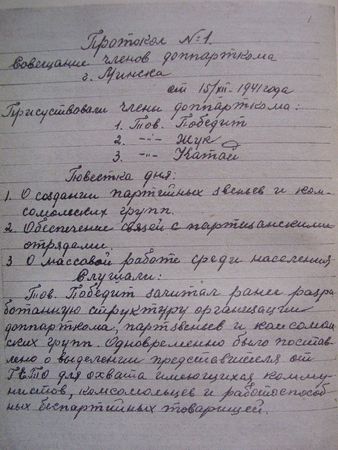 1
Протокол № 1.
Совещание членов доппарткома
г. Минска
от 15/XII - 1941 года
Присуствовали члени доппарткома:
1. Тов. Победит
2. -"- Жук
3. -"- Катай
Повестка дня:
1. О создании партийных звеньев и ком-
сомольских групп.
2. Обеспечение связей с партизанскими
отрядами.
3 О массовой работе среди населения
Слушали:
Тов. Победит зачитал ранее разра
ботанную структуру организации
доппарткома, партзвеньев и комсомоль
ских групп. Одновременно было поставле
но о выделении представителя от
для охвата имеющихся комму
нистов, комсомольцев и работоспособ
ных беспартийных товарищей.